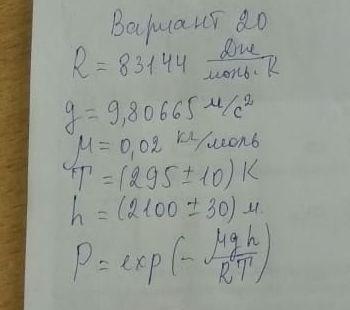 Вариант 20
R = 83144 Дж/моль·К
g = 9,80665 м/с²
M = 0,02 кг/моль
T = (295 ± 10) К
h = (2100 ± 30) м
P = exp(- Mgh/RT)